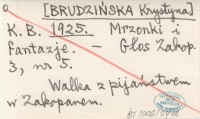 [BRUDZIŃSKA Krystyna]
K.B. 1925. Mrzonki i
fantazje. — Głos Zakop.
3, nr 5.
Walka z pijaństwem
w Zakopanem.